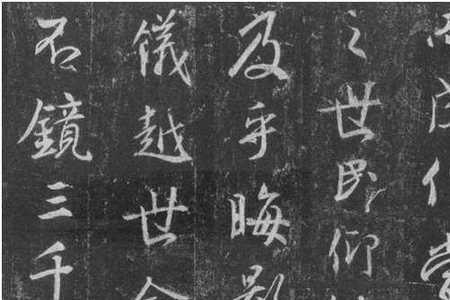 之世民仰
及乎晦影
儀越世金
不鏡三千